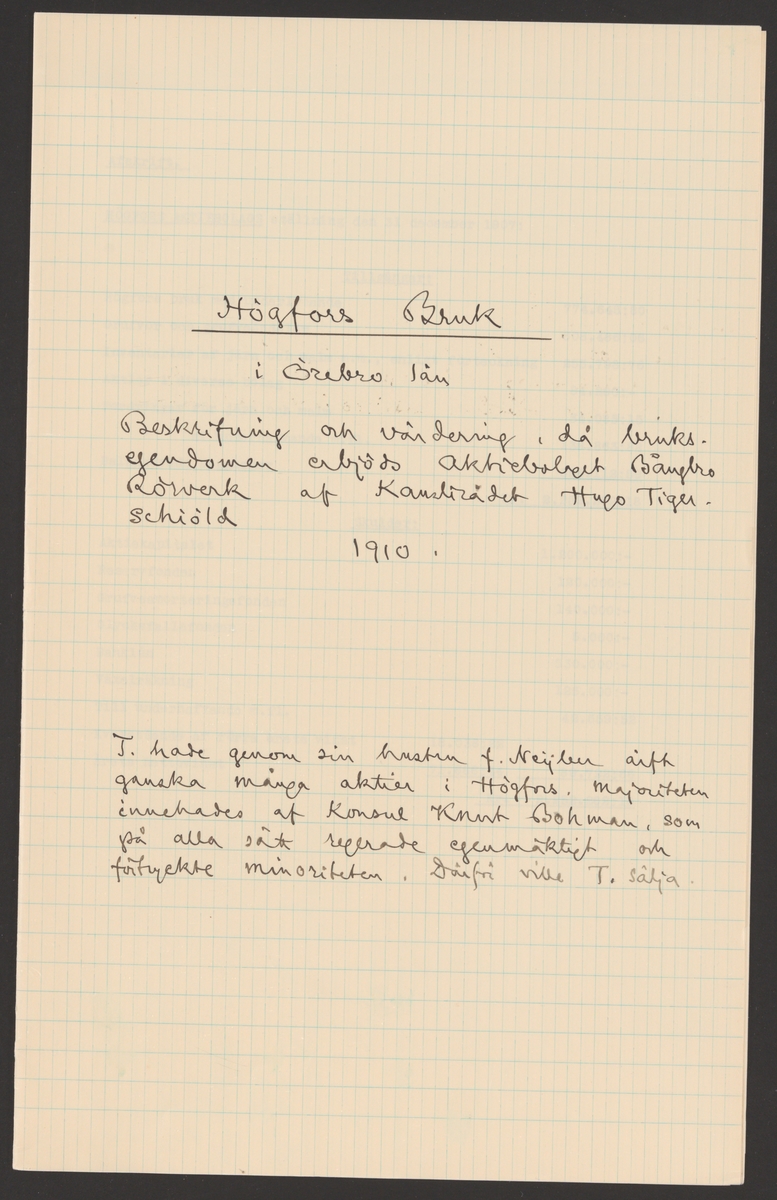 Högfors Bruk
i Örebro län
Beskrifning och värdering, då bruks-
egendomen erbjöds Aktiebolaget Bångbro
Rörverk af Kanslirådet Hugo Tiger-
schiöld
1910.
T. hade genom sin hustru f. Neijber ärft
ganska många aktier i Högfors. Majoriteten
innehades af Konsul Knut Bohman, som
på alla sätt regerade egenmäktigt och
förtryckte minoriteten. Därför ville T. sälja.